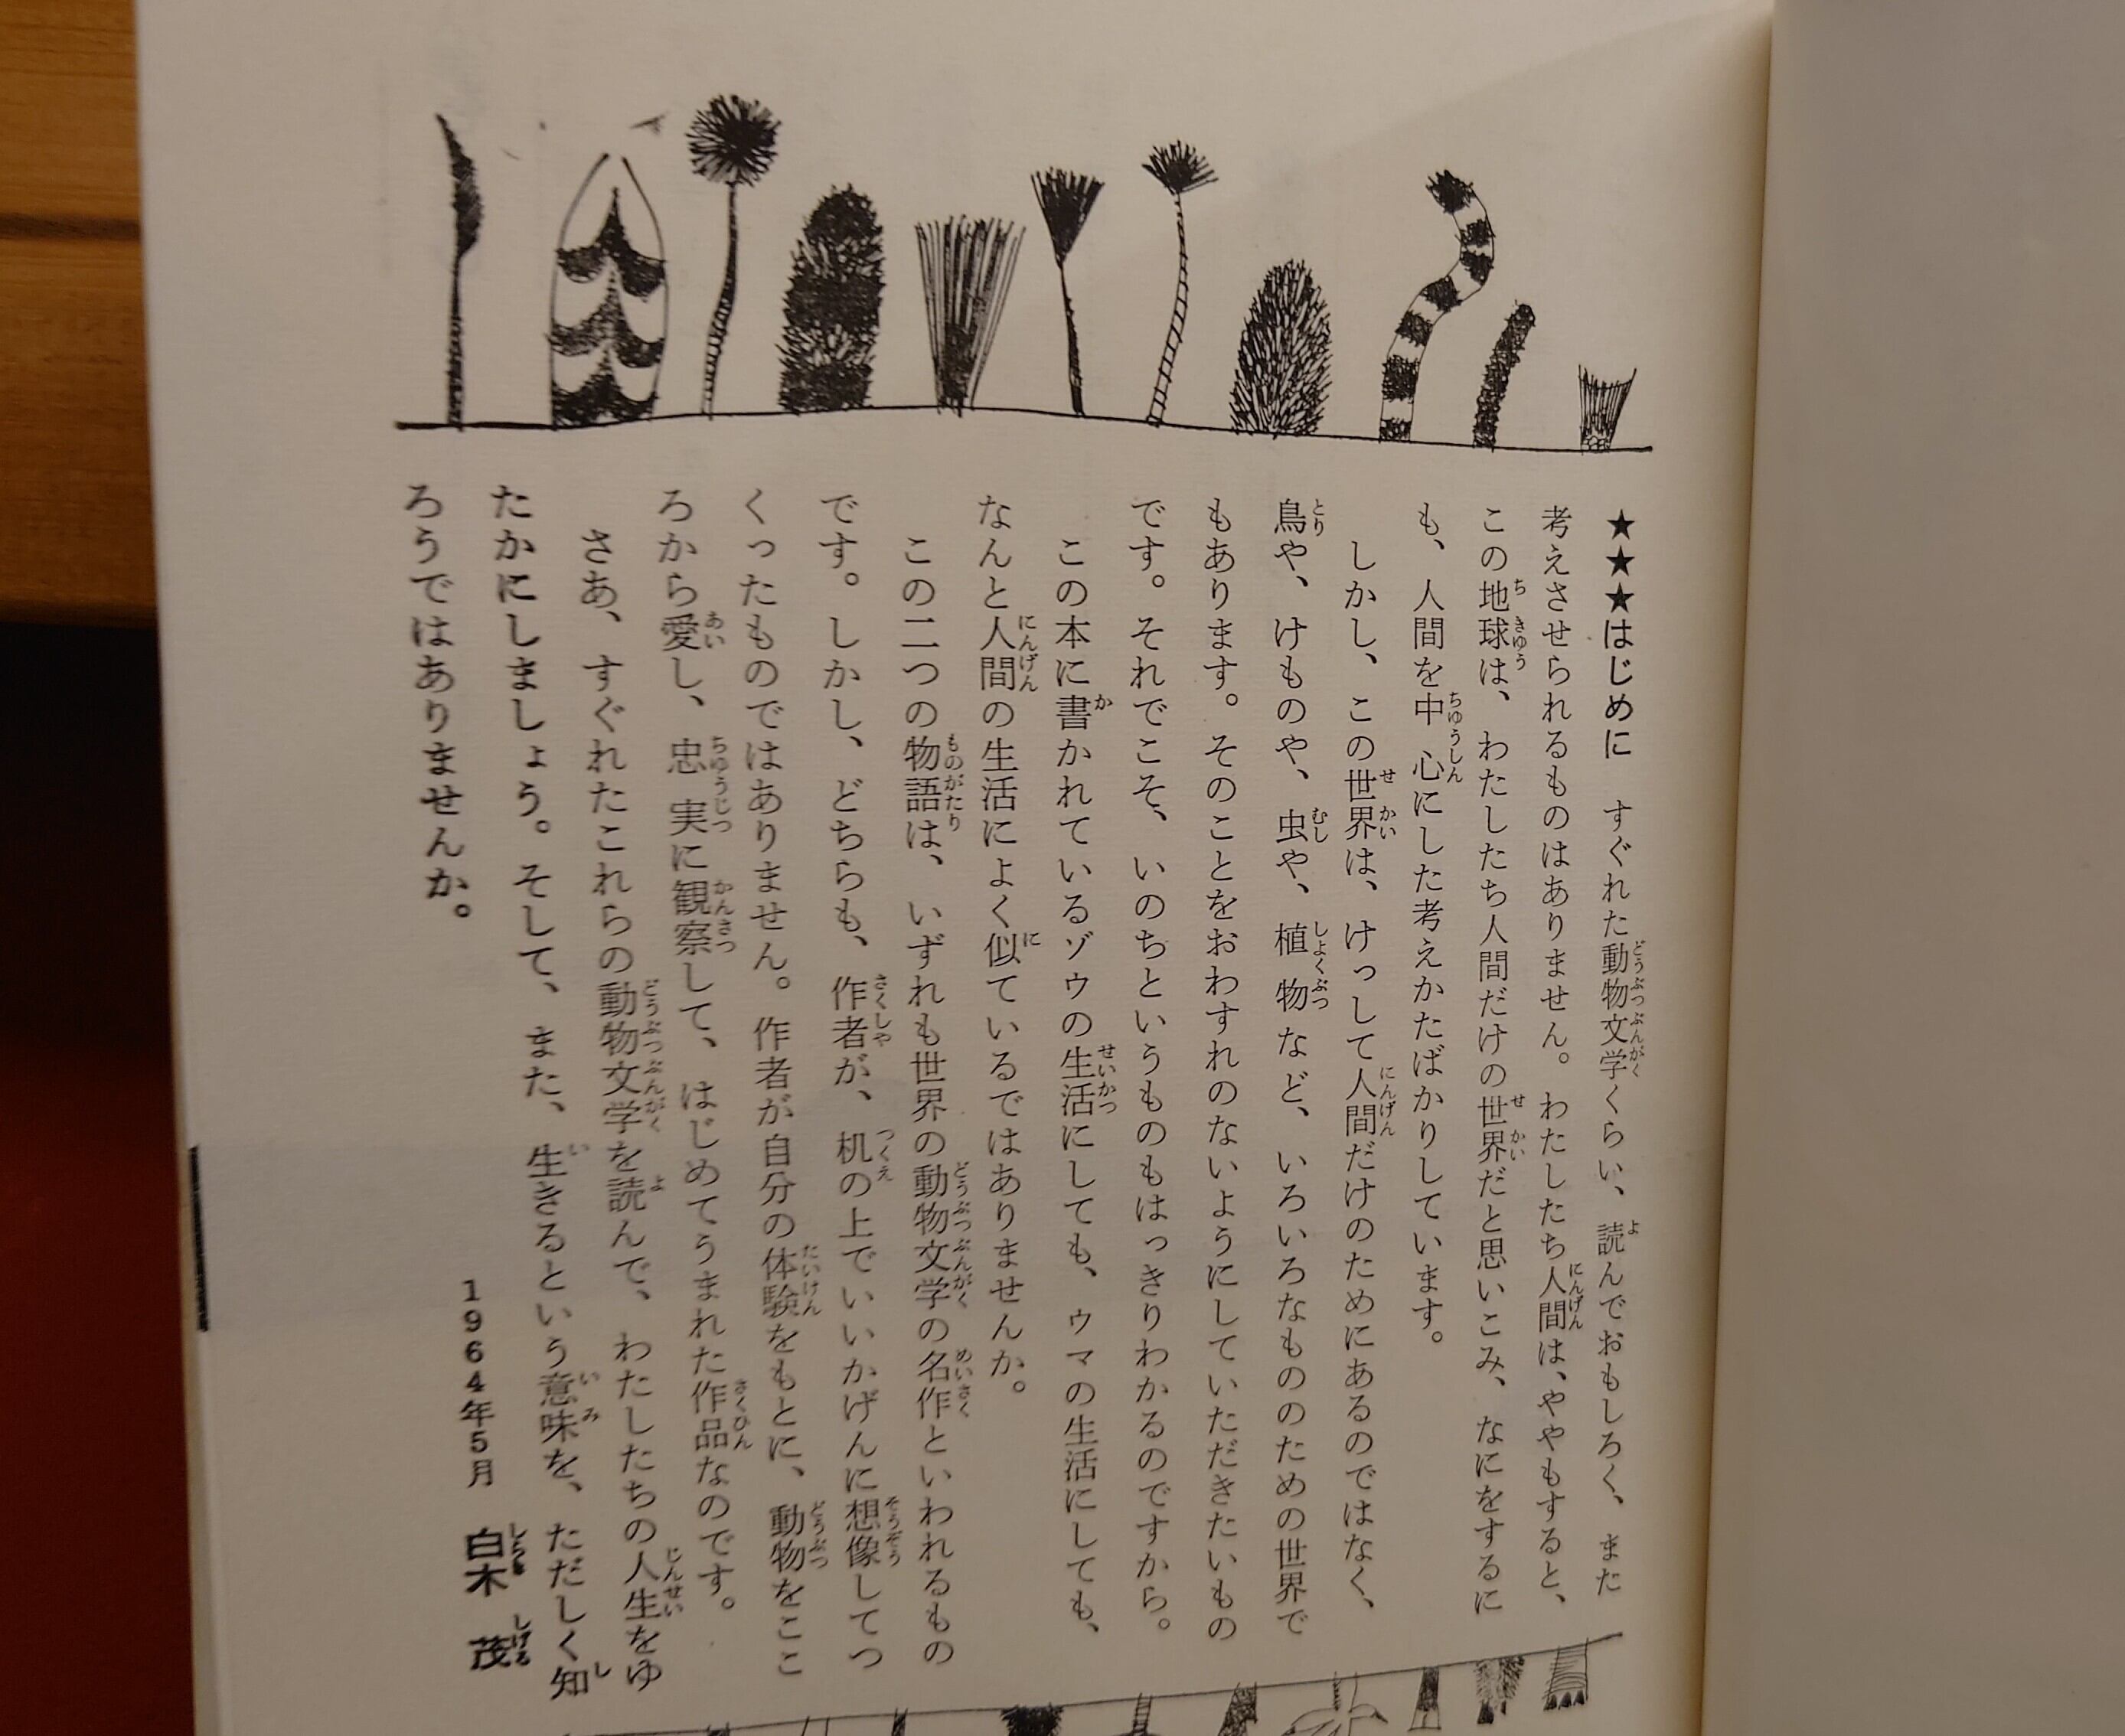 ★★★はじめに　すぐれた動物文学くらい、読んでおもしろく、また
考えさせられるものはありません。わたしたち人間は、ややもすると、
この地球は、わたしたち人間だけの世界だと思いこみ、なにをするに
も、人間を中心にした考えかたばかりしています。
しかし、この世界は、けっして人間だけのためにあるのではなく、
鳥や、けものや、虫や、植物など、いろいろなもののための世界で
もあります。そのことをおわすれのないようにしていただきたいもの
です。それでこそ、いのちというものもはっきりわかるのですから。
この本に書かれているゾウの生活にしても、ウマの生活にしても、
なんと人間の生活によく似ているではありませんか。
この二つの物語は、いずれも世界の動物文学の名作といわれるもの
です。しかし、どちらも、作者が、机の上でいいかげんに想像してつ
くったものではありません。作者が自分の体験をもとに、動物をここ
ろから愛し、忠実に観察して、はじめてうまれた作品なのです。
さあ、すぐれたこれらの動物文学を読んで、わたしたちの人生をゆ
たかにしましょう。そして、また、生きるという意味を、ただしく知
ろうではありませんか。
1964年5月　白木　茂